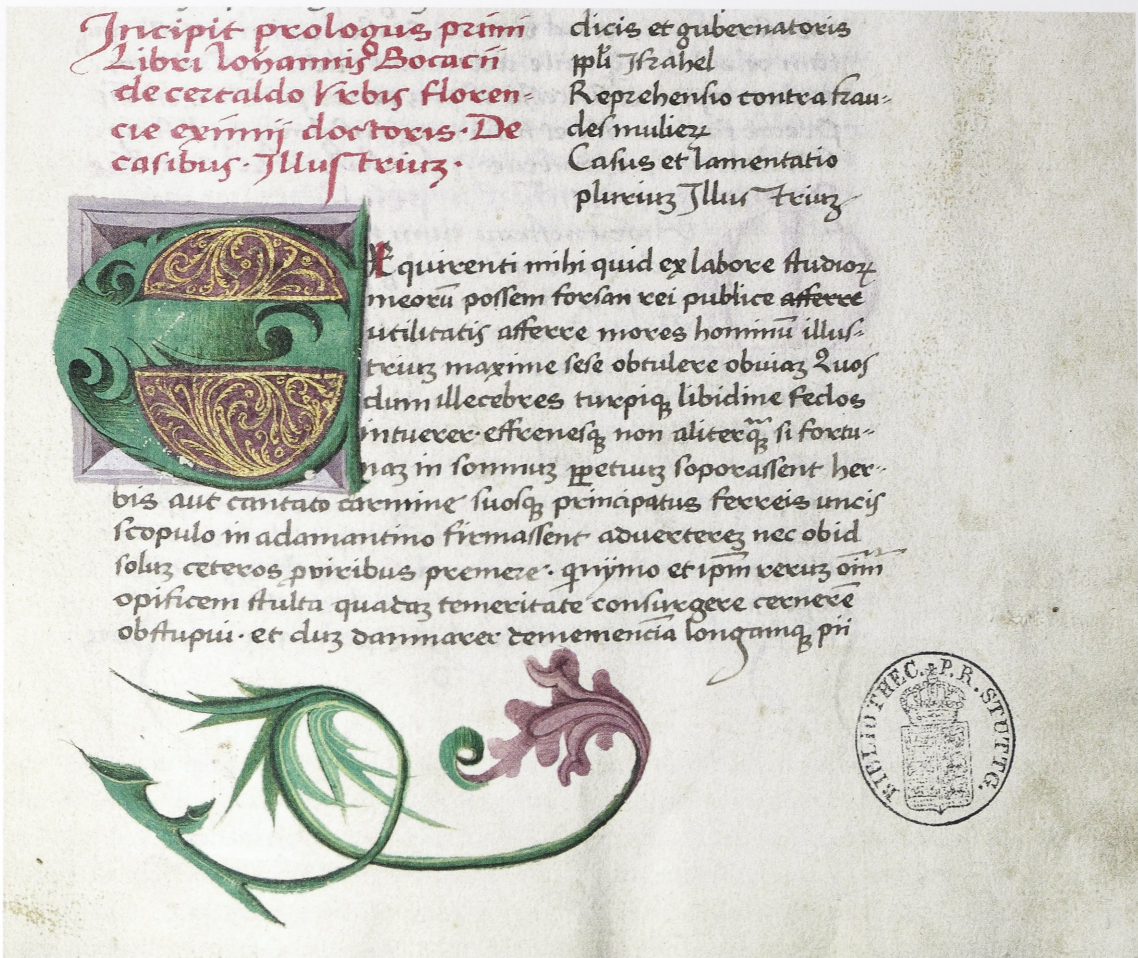 Incipit prologus primi
Libri Iohannis Bocacii
de certaldo Vrbis floren-
cie eximij doctoris. De
casibus. Illustriuʒ.
dicis et gubernatoris
ppli Israhel
Reprehensio contra frau-
des mulieꝝ
Casus et lamentatio
pluriuʒ Illustriuʒ
EXquirenti mihi quid ex labore studioꝝ
meorū possem forsan rei publice afferre
utilitatis afferre mores hominū illus-
triuʒ maxime sese obtulere obuiaʒ Quos
dum illecebres turpiqꝫ libidine fedos
intuerer. effrenesqꝫ non aliterqꝫ si fortu-
naʒ in somnuʒ ꝑpetuuʒ soporassent her-
bis aut cantato carmine suosqꝫ principatus ferreis uncis
scopulo in adamantino firmassent aduertereʒ nec ob id
soluʒ ceteros ꝓ viribus premere. quȳmo et ipm̄ reruʒ oīm
opificem stulta quadaʒ temeritate consurgere cernerē
obstupui. et duʒ damnarer dememenciā longamqꝫ pii
BIBLIOTHEC. P. R. STUTTG.